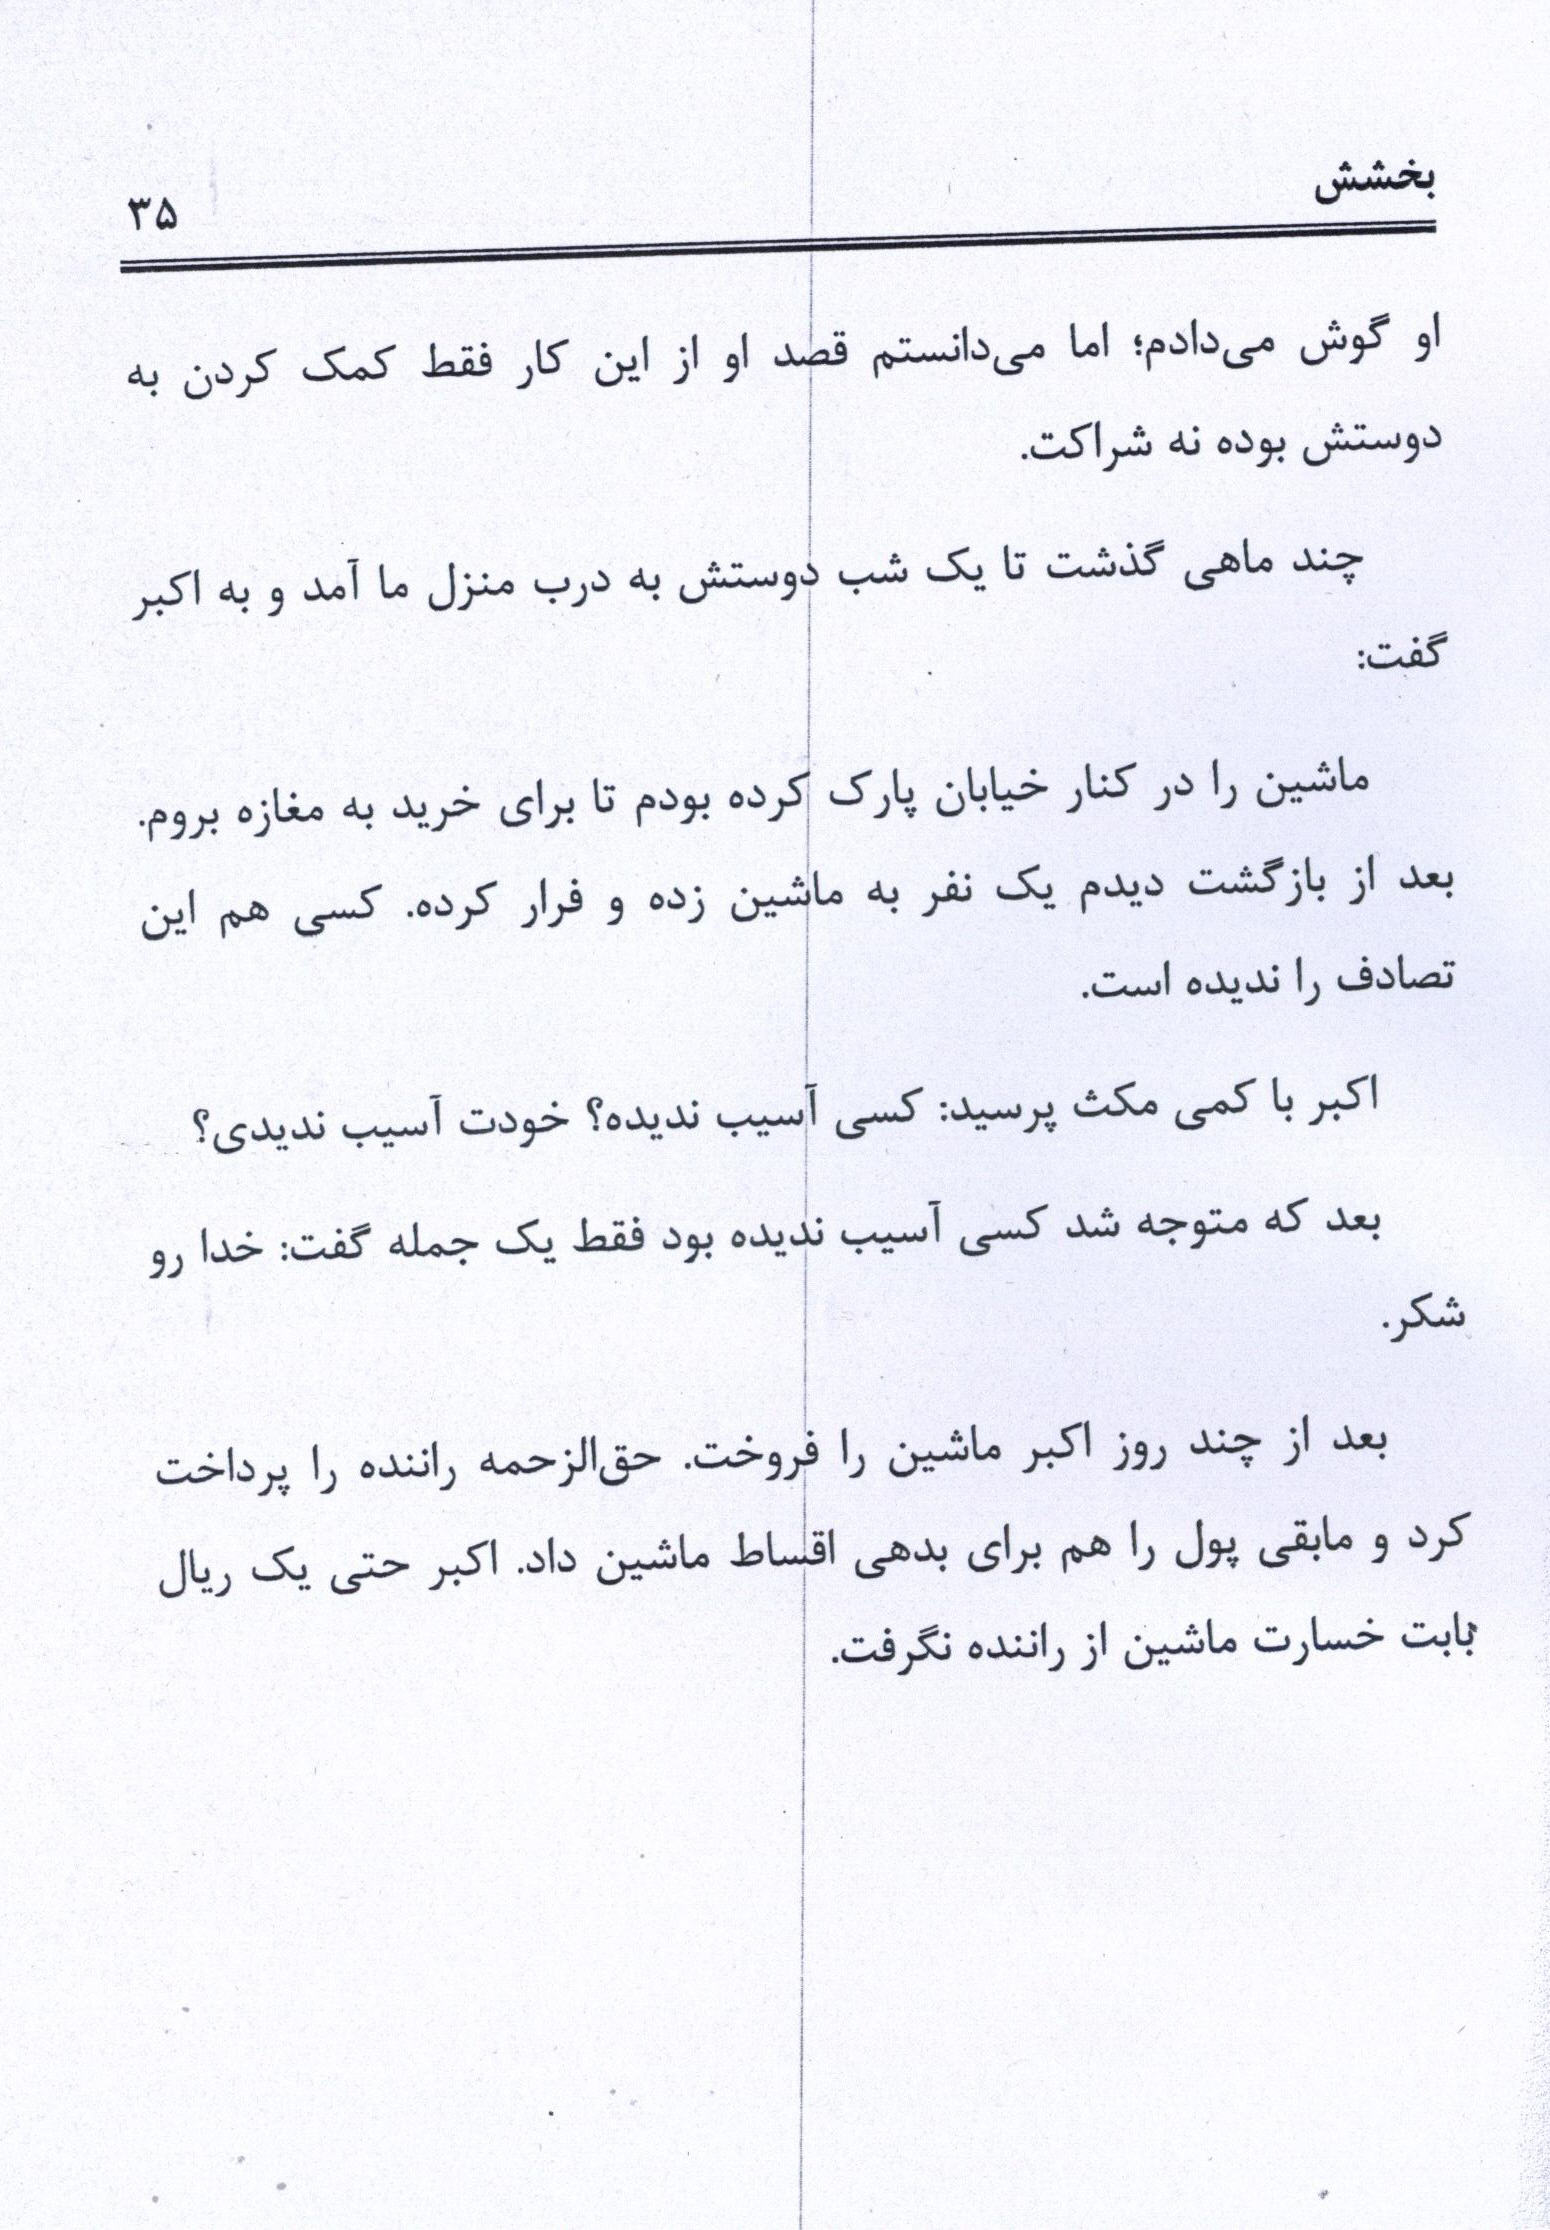 بخشش
۳۵
او گوش می‌دادم؛ اما می‌دانستم قصد او از این کار فقط کمک کردن به
دوستش بوده نه شراکت.
چند ماهی گذشت تا یک شب دوستش به درب منزل ما آمد و به اکبر
گفت:
ماشین را در کنار خیابان پارک کرده بودم تا برای خرید به مغازه بروم.
بعد از بازگشت دیدم یک نفر به ماشین زده و فرار کرده. کسی هم این
تصادف را ندیده است.
اکبر با کمی مکث پرسید: کسی آسیب ندیده؟ خودت آسیب ندیدی؟
بعد که متوجه شد کسی آسیب ندیده بود فقط یک جمله گفت: خدا رو
شکر.
بعد از چند روز اکبر ماشین را فروخت. حق‌الزحمه راننده را پرداخت
کرد و مابقی پول را هم برای بدهی اقساط ماشین داد. اکبر حتی یک ریال
بابت خسارت ماشین از راننده نگرفت.